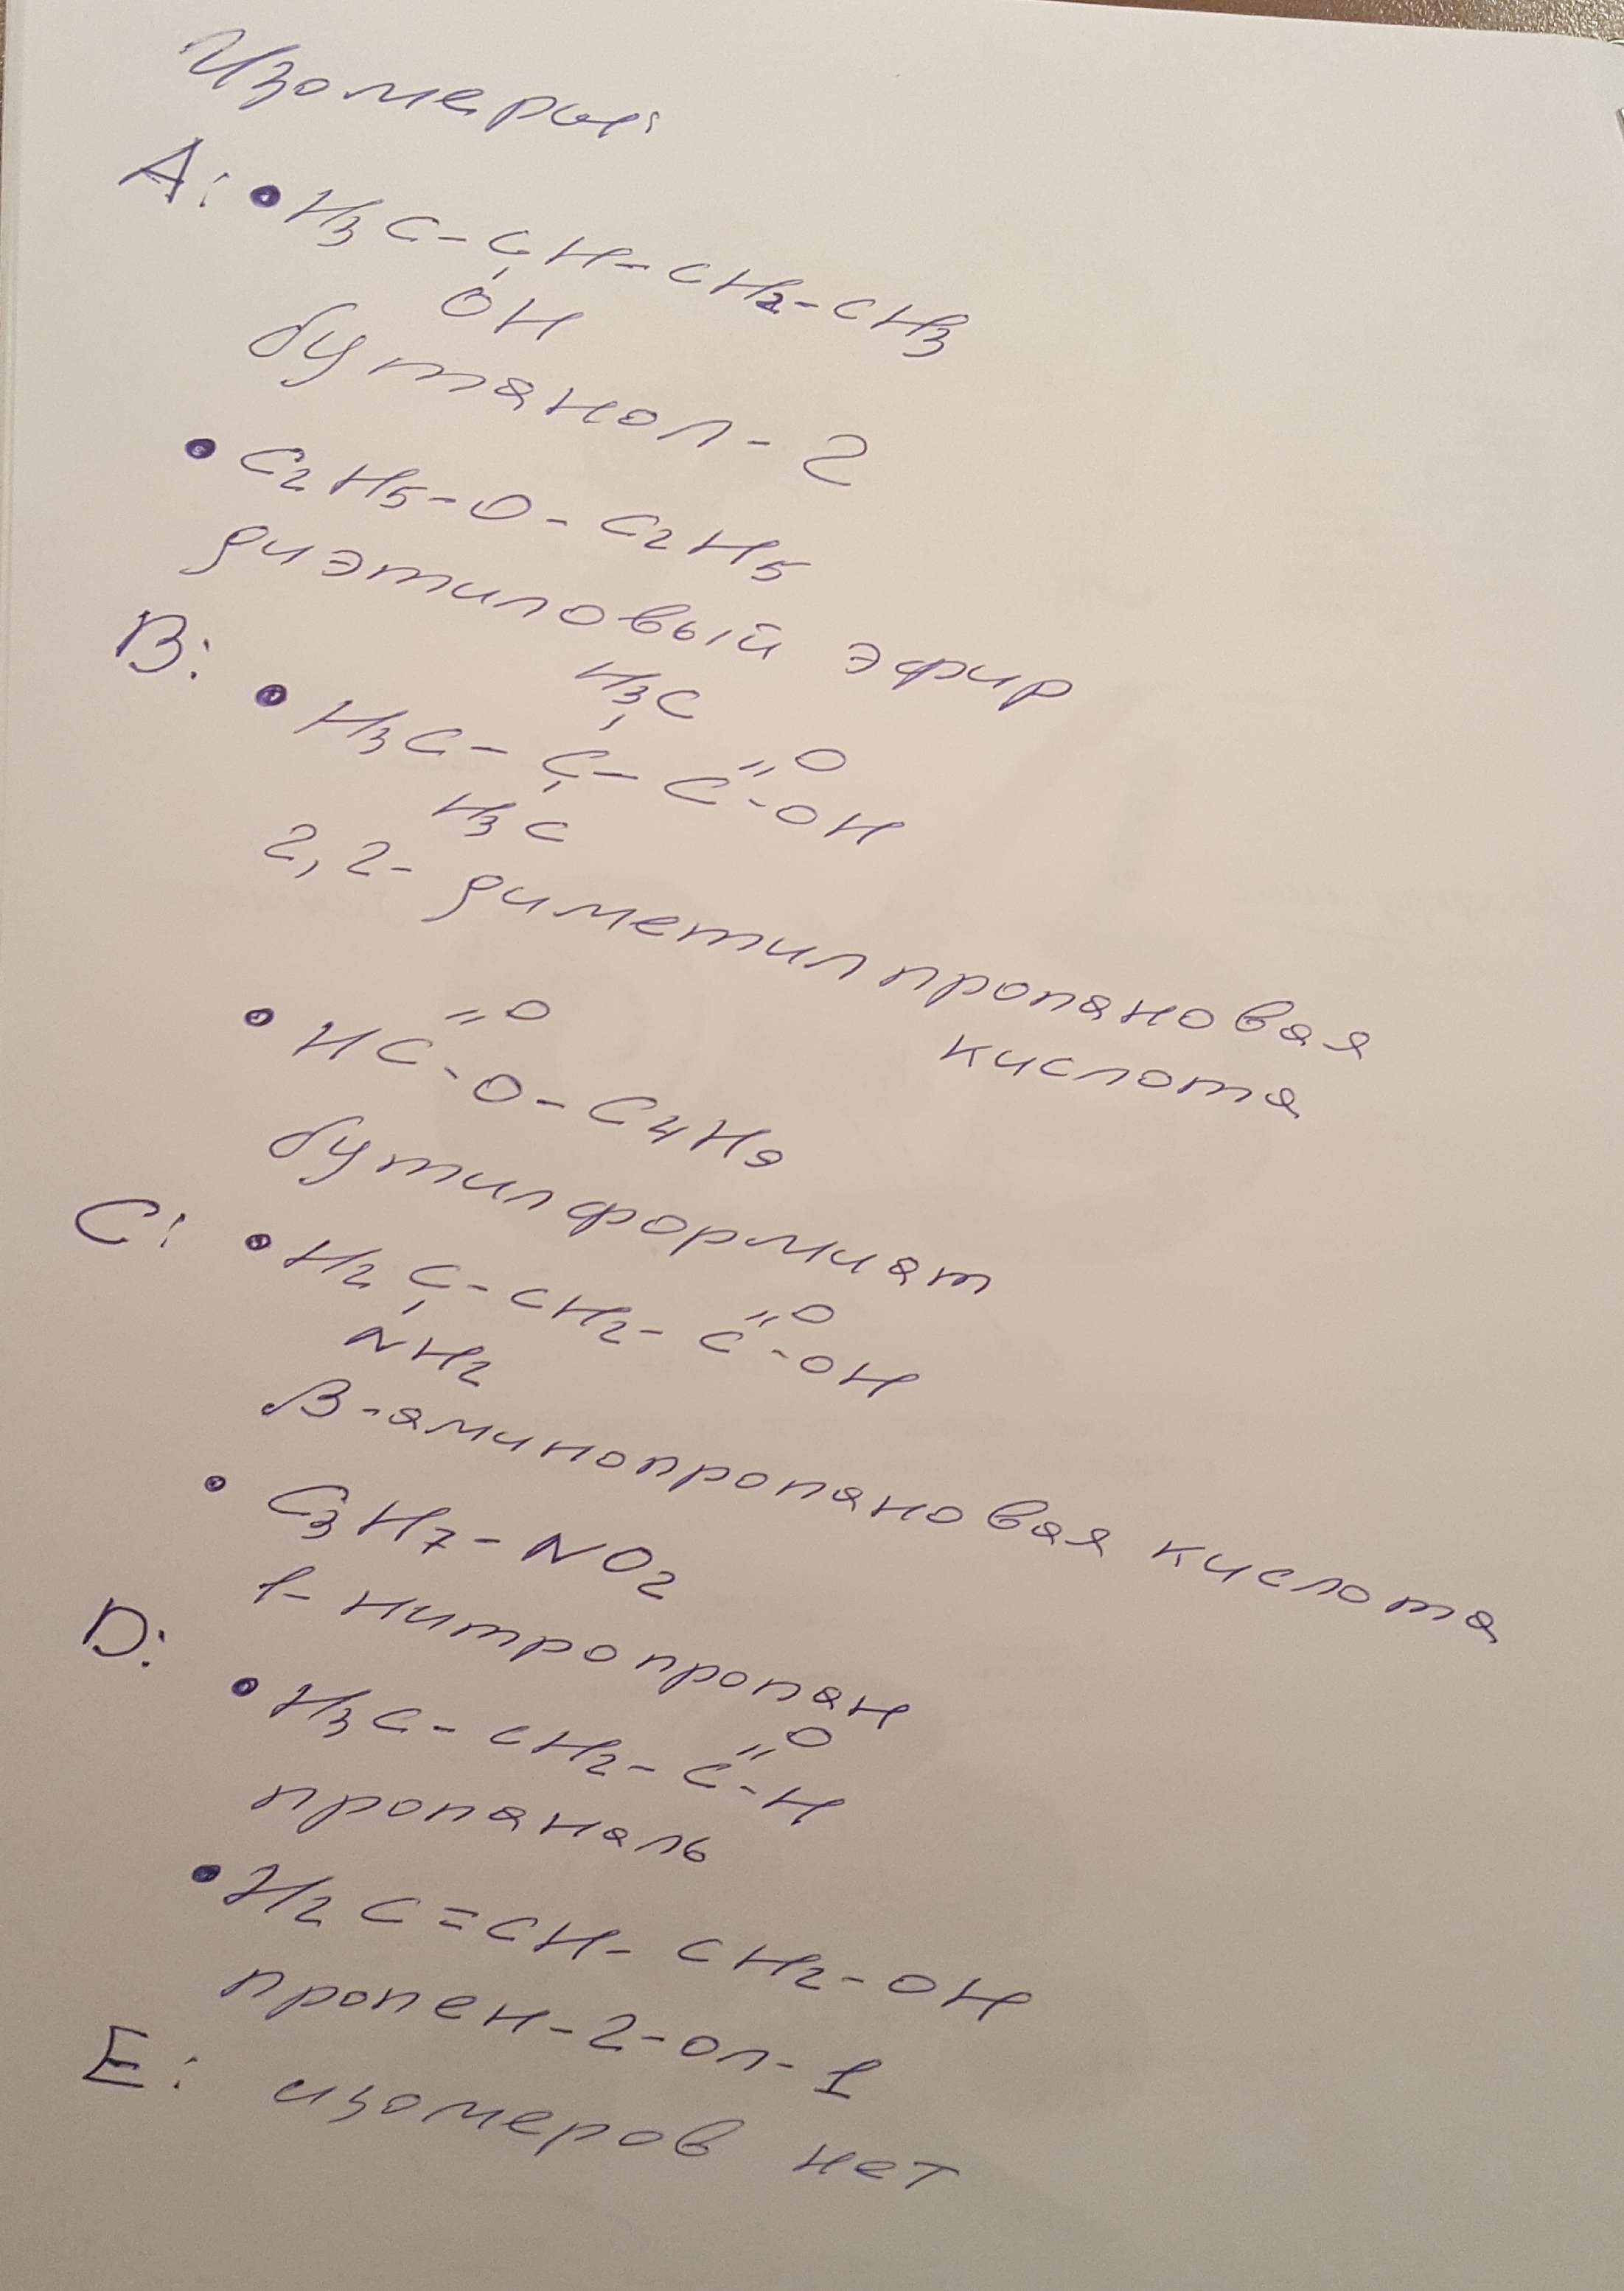 Изомеры:
A: • H3C-CH-CH2-CH3
OH
бутанол-2
• C2H5-O-C2H5
диэтиловый эфир
B:
H3C
• H3C-C-C=O
-OH
H3C
2,2-диметилпропановая
кислота
• HC=O
-O-C4H9
бутилформиат
C: • H2C-CH2-C=O
-OH
NH2
β-аминопропановая кислота
• C3H7-NO2
1-нитропропан
D:
• H3C-CH2-C=O
-H
пропаналь
• H2C=CH-CH2-OH
пропен-2-ол-1
E: изомеров нет